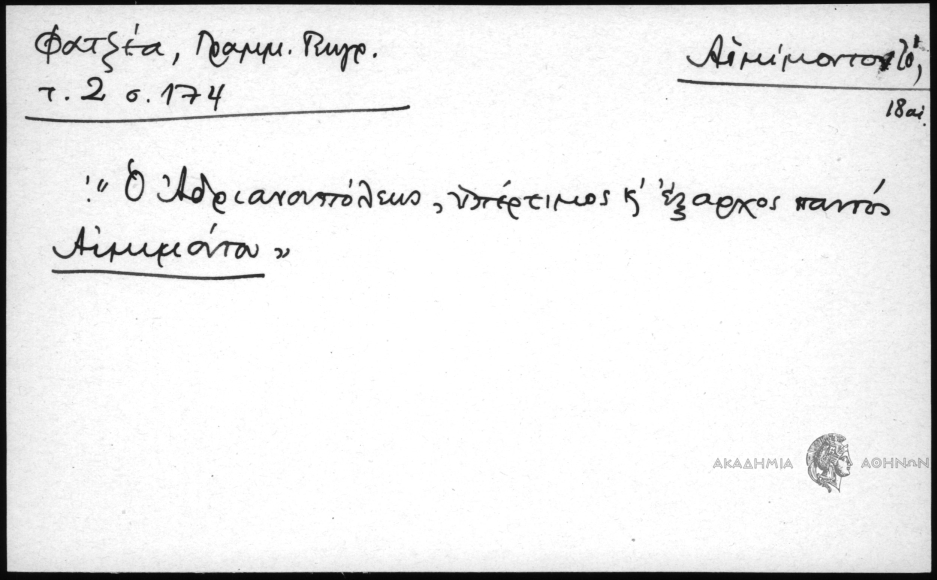 Φατζέα, Γραμμ. Πυγρ.
τ. 2 σ. 174
Αἱμίμοντο, τό,
18 αἰ.
:" Ὁ Ἁδριανουπόλεως, ὑπέρτιμος κ' ἔξαρχος παντός
Αἱμιμόντου "
ΑΚΑΔΗΜΙΑ ΑΘΗΝΩΝ